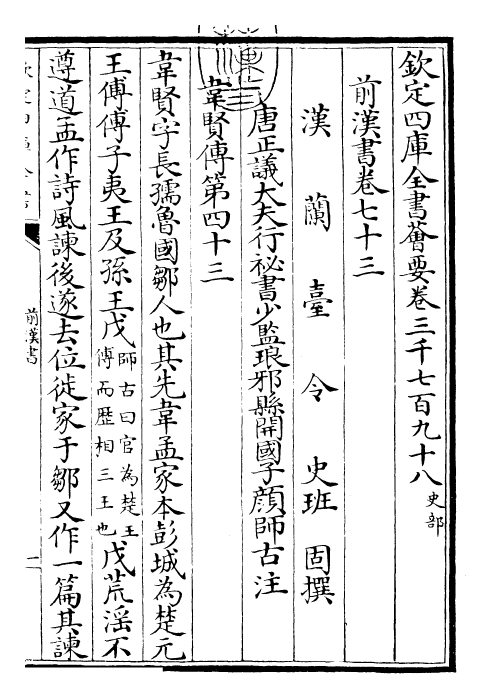 欽定四庫全書薈要卷三千七百九十八 史部
前漢書卷七十三
漢蘭臺令史班固撰
唐正議大夫行祕書少監琅邪縣開國子顏師古注
韋賢傳第四十三
韋賢字長孺魯國鄒人也其先韋孟家本彭城為楚元
王傅傅子夷王及孫王戊師古曰官為楚王傅而歷相三王也戊荒淫不
遵道孟作詩風諫後遂去位徙家于鄒又作一篇其諫
前漢書